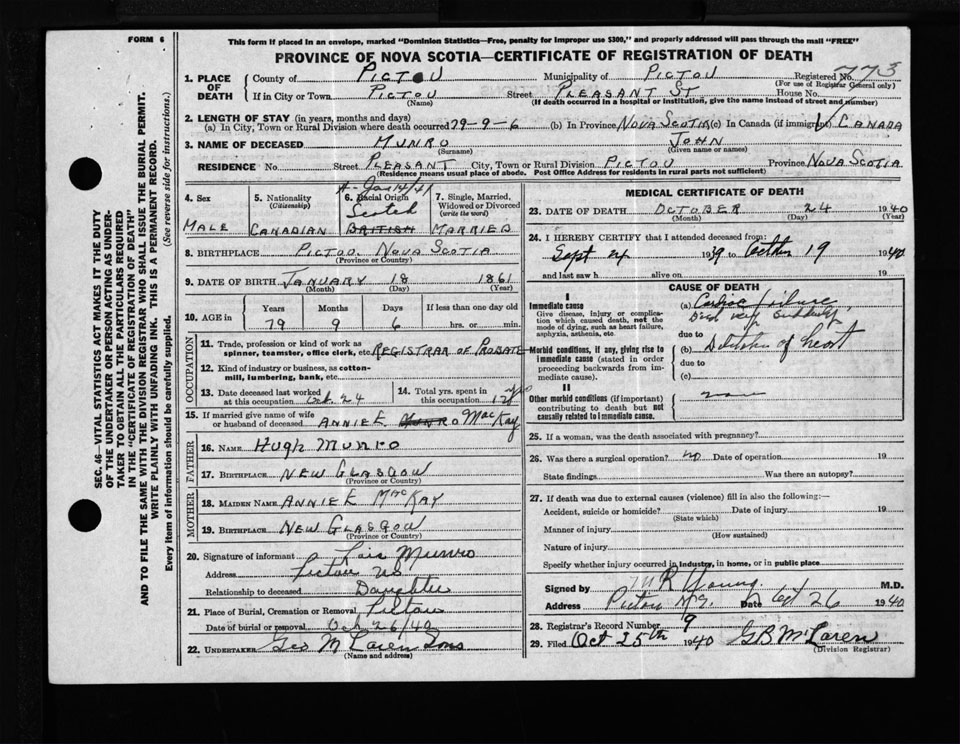 FORM 6
This form if placed in an envelope, marked "Dominion Statistics—Free, penalty for improper use $300," and properly addressed will pass through the mail "FREE"
PROVINCE OF NOVA SCOTIA—CERTIFICATE OF REGISTRATION OF DEATH
773
1. PLACE OF DEATH County of PICTOU Municipality of PICTOU Registered No.
(For use of Registrar General only)
If in City or Town PICTOU Street PLEASANT ST House No.
(Name) (If death occurred in a hospital or institution, give the name instead of street and number)
2. LENGTH OF STAY (in years, months and days)
(a) In City, Town or Rural Division where death occurred 79-9-6 (b) In Province NOVA SCOTIA (c) In Canada (if immigrant) CANADA
3. NAME OF DECEASED MUNRO JOHN
(Surname) (Given name or names)
RESIDENCE No. Street PLEASANT City, Town or Rural Division PICTOU Province NOVA SCOTIA
(Residence means usual place of abode. Post Office Address for residents in rural parts not sufficient)
4. Sex MALE
5. Nationality (Citizenship) CANADIAN
6. Racial Origin Scotch BRITISH
7. Single, Married, Widowed or Divorced (write the word) MARRIED
8. BIRTHPLACE PICTOU NOVA SCOTIA
(Province or Country)
9. DATE OF BIRTH JANUARY 18 1861
(Month) (Day) (Year)
10. AGE in Years Months Days If less than one day old
79 9 6 hrs. or min.
OCCUPATION
11. Trade, profession or kind of work as spinner, teamster, office clerk, etc. REGISTRAR OF PROBATE
12. Kind of industry or business, as cotton-mill, lumbering, bank, etc.
13. Date deceased last worked at this occupation Oct 24
14. Total yrs. spent in this occupation
15. If married give name of wife or husband of deceased ANNIE E. MUNRO MacKay
FATHER
16. NAME HUGH MUNRO
17. BIRTHPLACE NEW GLASGOW
(Province or Country)
MOTHER
18. MAIDEN NAME ANNIE E MacKAY
19. BIRTHPLACE NEW GLASGOW
(Province or Country)
20. Signature of informant Munro
Address Pictou NS
Relationship to deceased Daughter
21. Place of Burial, Cremation or Removal Pictou
Date of burial or removal Oct 26/40
22. UNDERTAKER Geo McLaren Sons
(Name and address)
MEDICAL CERTIFICATE OF DEATH
23. DATE OF DEATH OCTOBER 24 1940
(Month) (Day) (Year)
24. I HEREBY CERTIFY that I attended deceased from:
Sept 24 1939 to October 19 1940
and last saw h alive on 19
CAUSE OF DEATH
I
Immediate cause
Give disease, injury or complication which caused death, not the mode of dying, such as heart failure, asphyxia, asthenia, etc.
(a) Cardiac failure
Died very suddenly
due to
Morbid conditions, if any, giving rise to immediate cause (stated in order proceeding backwards from immediate cause).
(b) Dilatation of heart
due to
(c)
II
Other morbid conditions (if important) contributing to death but not causally related to immediate cause.
none
25. If a woman, was the death associated with pregnancy?
26. Was there a surgical operation? no Date of operation 19
State findings Was there an autopsy?
27. If death was due to external causes (violence) fill in also the following:—
Accident, suicide or homicide? Date of injury 19
(State which)
Manner of injury
(How sustained)
Nature of injury
Specify whether injury occurred in industry, in home, or in public place
Signed by M R Young M.D.
Address Pictou N.S. Date Oct 26 1940
28. Registrar's Record Number 9
29. Filed Oct 25th 1940 G B McLaren
(Division Registrar)
SEC. 46—VITAL STATISTICS ACT MAKES IT THE DUTY
OF THE UNDERTAKER OR PERSON ACTING AS UNDER-
TAKER TO OBTAIN ALL THE PARTICULARS REQUIRED
IN THE "CERTIFICATE OF REGISTRATION OF DEATH"
AND TO FILE THE SAME WITH THE DIVISION REGISTRAR WHO SHALL ISSUE THE BURIAL PERMIT.
WRITE PLAINLY WITH UNFADING INK. THIS IS A PERMANENT RECORD.
Every item of information should be carefully supplied. (See reverse side for instructions.)